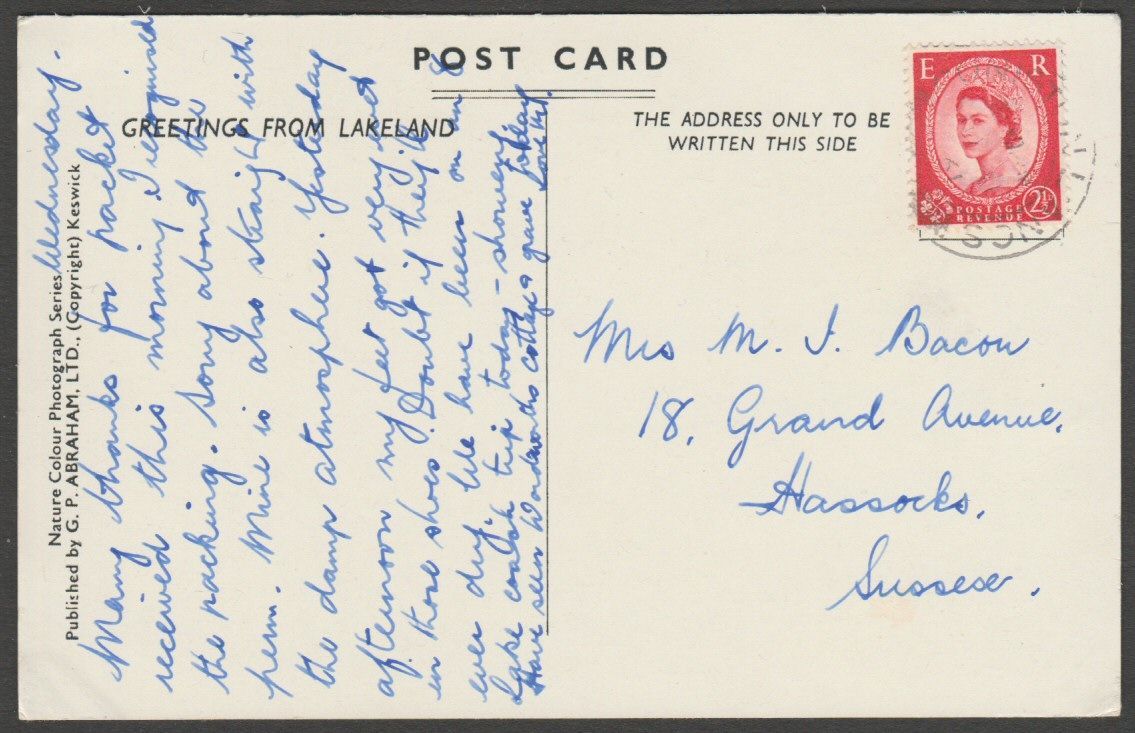 POST CARD
GREETINGS FROM LAKELAND
THE ADDRESS ONLY TO BE
WRITTEN THIS SIDE
E R
POSTAGE
REVENUE
2½
Nature Colour Photograph Series
Published by G. P. ABRAHAM, LTD., (Copyright) Keswick
Wednesday.
Many thanks for packet
received this morning I recognised
the packing. Sorry about the
perm. Mine is also straight with
the damp atmosphere. Yesterday
afternoon my feet got very wet
in those shoes. Doubt if they'll
ever dry. We have been on an 8
Lake coach trip today - showery today
Have seen Wordsworths cottage & grave Love
Mrs M. J. Bacon
18, Grand Avenue,
Hassocks,
Sussex.